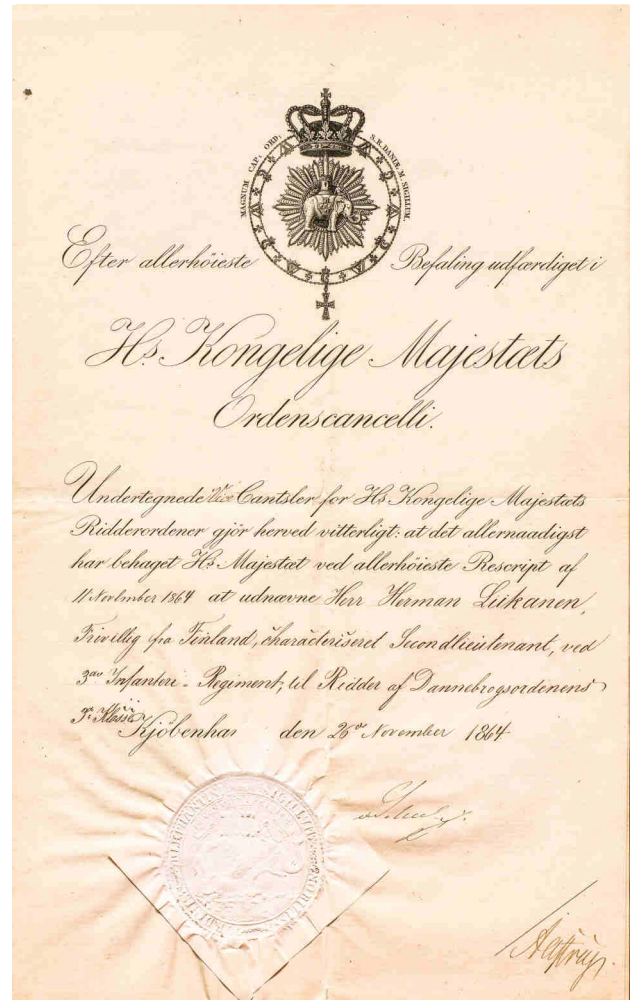 MAGNUM CAP. ORD. S. R. DANIE. M. SIGILLUM.
Efter allerhöieste Befaling udfærdiget i
Hs. Kongelige Majestæts
Ordenscancelli.
Undertegnede Vice Cantsler for Hs. Kongelige Majestæts
Ridderordener gjör herved vitterligt: at det allernaadigst
har behaget Hs. Majestæt ved allerhöieste Rescript af
11 November 1864 at udnævne Herr Herman Liikanen,
Frivillig fra Finland, characteriseret Secondlieutenant, ved
3die Infanteri-Regiment, til Ridder af Dannebrogsordenens
Klasse
Kjöbenhav den 26de November 1864